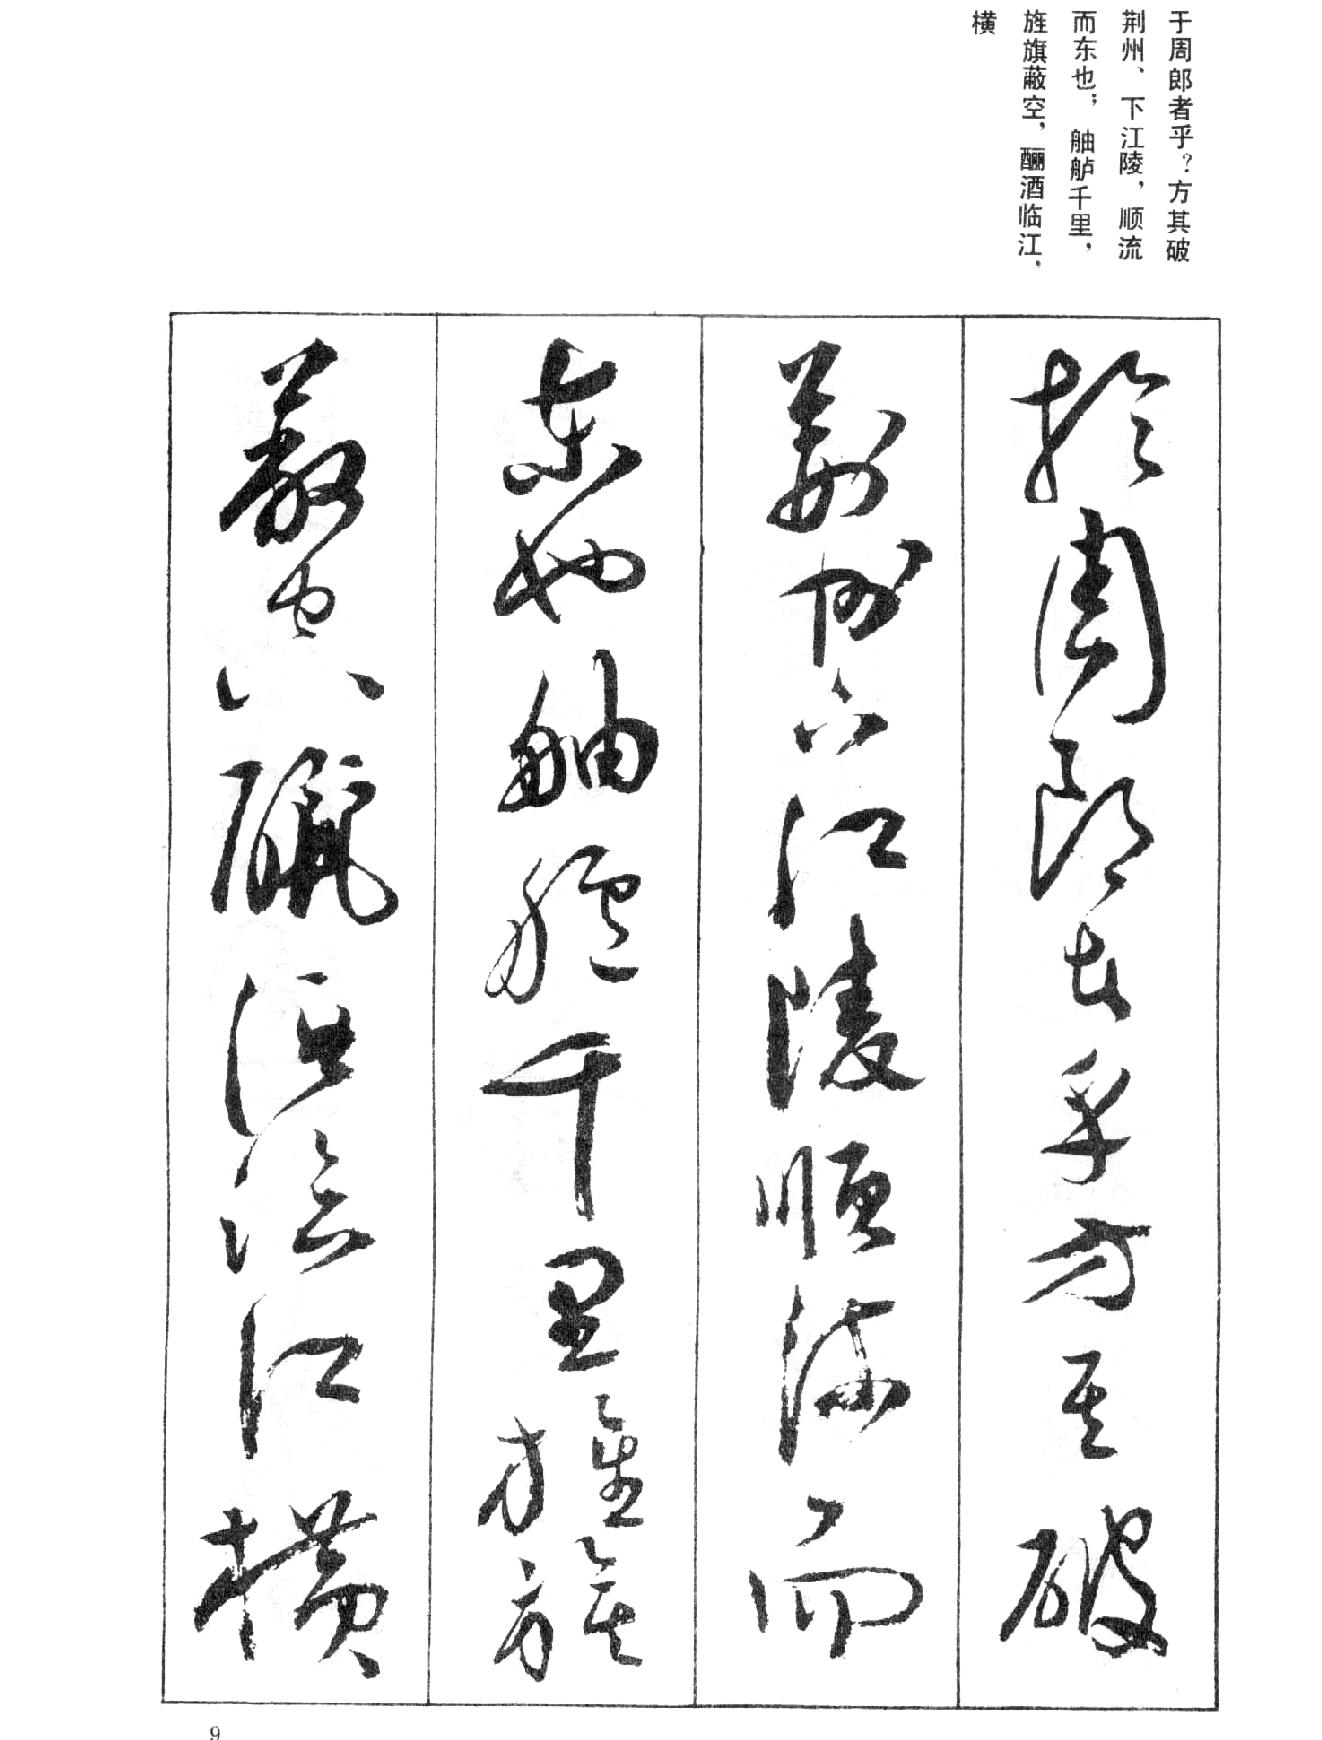 于周郎者乎？方其破
荆州、下江陵，顺流
而东也；舳舻千里，
旌旗蔽空，酾酒临江，
横
於周郎者乎方其破
荆州下江陵顺流而
东也舳舻千里旌旗
蔽空酾酒临江横
9